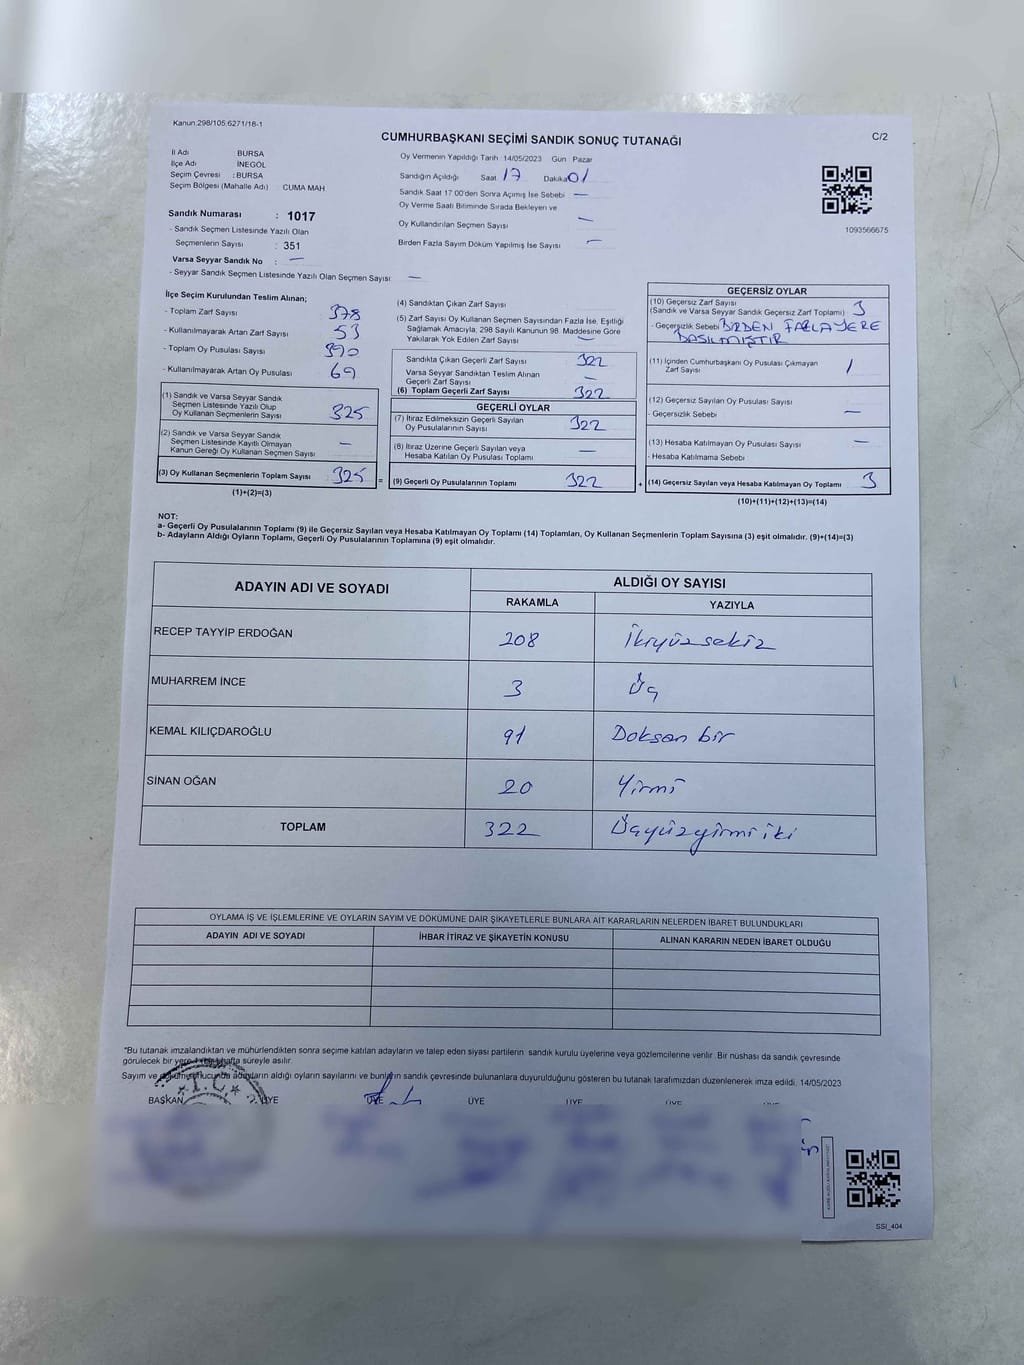 Kanun:298/105,6271/18-1
CUMHURBAŞKANI SEÇİMİ SANDIK SONUÇ TUTANAĞI
C/2
İl Adı BURSA
İlçe Adı İNEGÖL
Seçim Çevresi : BURSA
Seçim Bölgesi (Mahalle Adı) : CUMA MAH
Oy Vermenin Yapıldığı Tarih 14/05/2023 Gün Pazar
Sandığın Açıldığı Saat 17 Dakika 01
Sandık Saat 17:00'den Sonra Açımış İse Sebebi —
Oy Verme Saati Bitiminde Sırada Bekleyen ve
Oy Kullandırılan Seçmen Sayısı —
Birden Fazla Sayım Döküm Yapılmış İse Sayısı —
1093566675
Sandık Numarası : 1017
- Sandık Seçmen Listesinde Yazılı Olan
Seçmenlerin Sayısı : 351
Varsa Seyyar Sandık No : —
- Seyyar Sandık Seçmen Listesinde Yazılı Olan Seçmen Sayısı : —
İlçe Seçim Kurulundan Teslim Alınan;
- Toplam Zarf Sayısı 378
- Kullanılmayarak Artan Zarf Sayısı 53
- Toplam Oy Pusulası Sayısı 390
- Kullanılmayarak Artan Oy Pusulası 69
(1) Sandık ve Varsa Seyyar Sandık
Seçmen Listesinde Yazılı Olup
Oy Kullanan Seçmenlerin Sayısı 325
(2) Sandık ve Varsa Seyyar Sandık
Seçmen Listesinde Kayıtlı Olmayan
Kanun Gereği Oy Kullanan Seçmen Sayısı —
(3) Oy Kullanan Seçmenlerin Toplam Sayısı 325 =
(1)+(2)=(3)
(4) Sandıktan Çıkan Zarf Sayısı
(5) Zarf Sayısı Oy Kullanan Seçmen Sayısından Fazla İse, Eşitliği
Sağlamak Amacıyla, 298 Sayılı Kanunun 98. Maddesine Göre
Yakılarak Yok Edilen Zarf Sayısı —
Sandıkta Çıkan Geçerli Zarf Sayısı 322
Varsa Seyyar Sandıktan Teslim Alınan
Geçerli Zarf Sayısı —
(6) Toplam Geçerli Zarf Sayısı 322
GEÇERLİ OYLAR
(7) İtiraz Edilmeksizin Geçerli Sayılan
Oy Pusulalarının Sayısı 322
(8) İtiraz Üzerine Geçerli Sayılan veya
Hesaba Katılan Oy Pusulası Toplamı —
(9) Geçerli Oy Pusulalarının Toplamı 322 +
GEÇERSİZ OYLAR
(10) Geçersiz Zarf Sayısı
(Sandık ve Varsa Seyyar Sandık Geçersiz Zarf Toplamı) 3
- Geçersizlik Sebebi BİRDEN FAZLA YERE
BASILMIŞTIR
(11) İçinden Cumhurbaşkanı Oy Pusulası Çıkmayan
Zarf Sayısı /
(12) Geçersiz Sayılan Oy Pusulası Sayısı
- Geçersizlik Sebebi —
(13) Hesaba Katılmayan Oy Pusulası Sayısı —
- Hesaba Katılmama Sebebi
(14) Geçersiz Sayılan veya Hesaba Katılmayan Oy Toplamı 3
(10)+(11)+(12)+(13)=(14)
NOT:
a- Geçerli Oy Pusulalarının Toplamı (9) ile Geçersiz Sayılan veya Hesaba Katılmayan Oy Toplamı (14) Toplamları, Oy Kullanan Seçmenlerin Toplam Sayısına (3) eşit olmalıdır. (9)+(14)=(3)
b- Adayların Aldığı Oyların Toplamı, Geçerli Oy Pusulalarının Toplamına (9) eşit olmalıdır.
ADAYIN ADI VE SOYADI ALDIĞI OY SAYISI
RAKAMLA YAZIYLA
RECEP TAYYİP ERDOĞAN 208 İkiyüzsekiz
MUHARREM İNCE 3 Üç
KEMAL KILIÇDAROĞLU 91 Doksan bir
SİNAN OĞAN 20 Yirmi
TOPLAM 322 Üçyüzyirmiiki
OYLAMA İŞ VE İŞLEMLERİNE VE OYLARIN SAYIM VE DÖKÜMÜNE DAİR ŞİKAYETLERLE BUNLARA AİT KARARLARIN NELERDEN İBARET BULUNDUKLARI
ADAYIN ADI VE SOYADI İHBAR İTİRAZ VE ŞİKAYETİN KONUSU ALINAN KARARIN NEDEN İBARET OLDUĞU
"Bu tutanak imzalandıktan ve mühürlendikten sonra seçime katılan adayların ve talep eden siyasi partilerin sandık kurulu üyelerine veya gözlemcilerine verilir. Bir nüshası da sandık çevresinde
görülecek bir yere hafta süreyle asılır.
Sayım ve adayların aldığı oyların sayılarını ve bunların sandık çevresinde bulunanlara duyurulduğunu gösteren bu tutanak tarafımızdan düzenlenerek imza edildi. 14/05/2023
BAŞKAN ÜYE ÜYE ÜYE ÜYE ÜYE
T.C.
SSİ_404